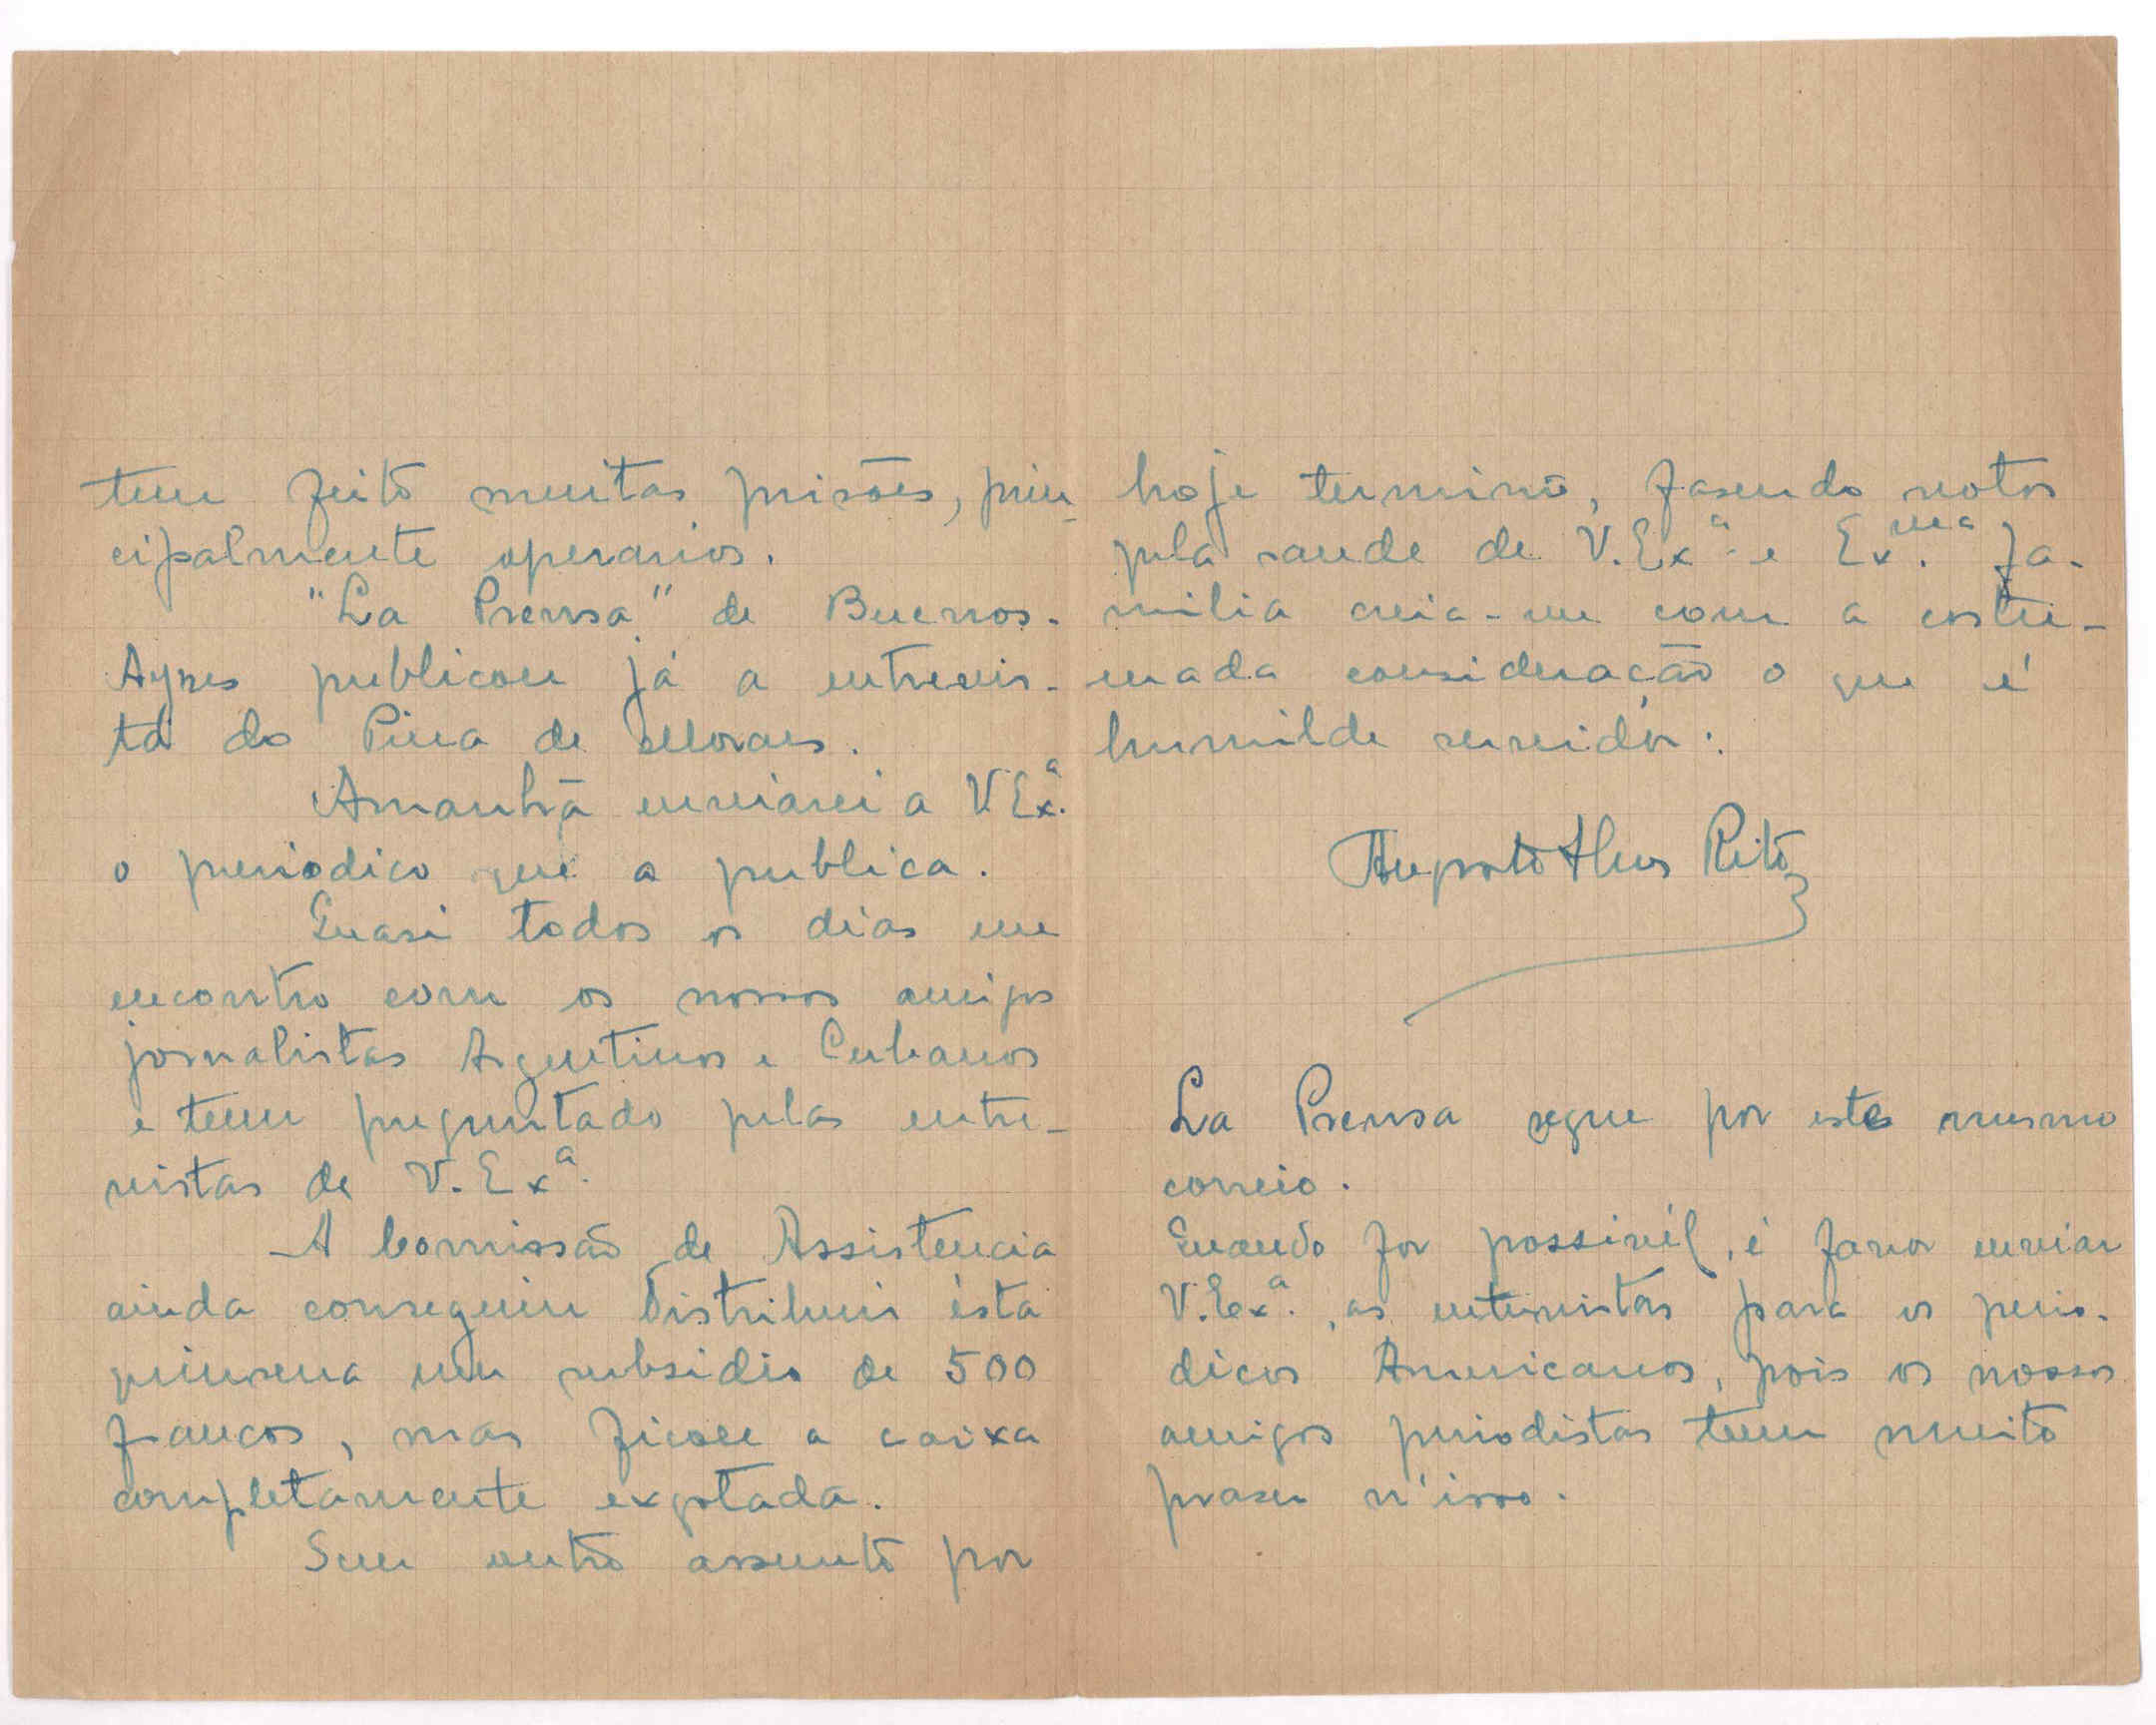 tem feito muitas prisões, prin-
cipalmente operarios.
"La Prensa" de Buenos-
Ayres publicou já a entrevis-
ta do Pina de Moraes.
Amanhã enviarei a V. Exª.
o periodico que a publica.
Quasi todos os dias me
encontro com os nossos amigos
jornalistas Argentinos e Cubanos
e tem preguntado pelas entre-
vistas de V. Exª.
A Comissão de Assistencia
ainda conseguiu distribuir ésta
quinzena um subsidio de 500
francos, mas ficou a caixa
completamente exgotada.
Sem outro assunto por
hoje termino, fasendo votos
pela saude de V. Exª. e Ex.ma Fa-
milia creia-me com a costu-
mada consideração o que é
humilde servidor:
Augusto Rito
La Prensa segue por este mesmo
correio.
Quando for possivél, é favor enviar
V. Exª., as entrevistas para os perio-
dicos Americanos, pois os nossos
amigos periodistas tem muito
praser n'isso.